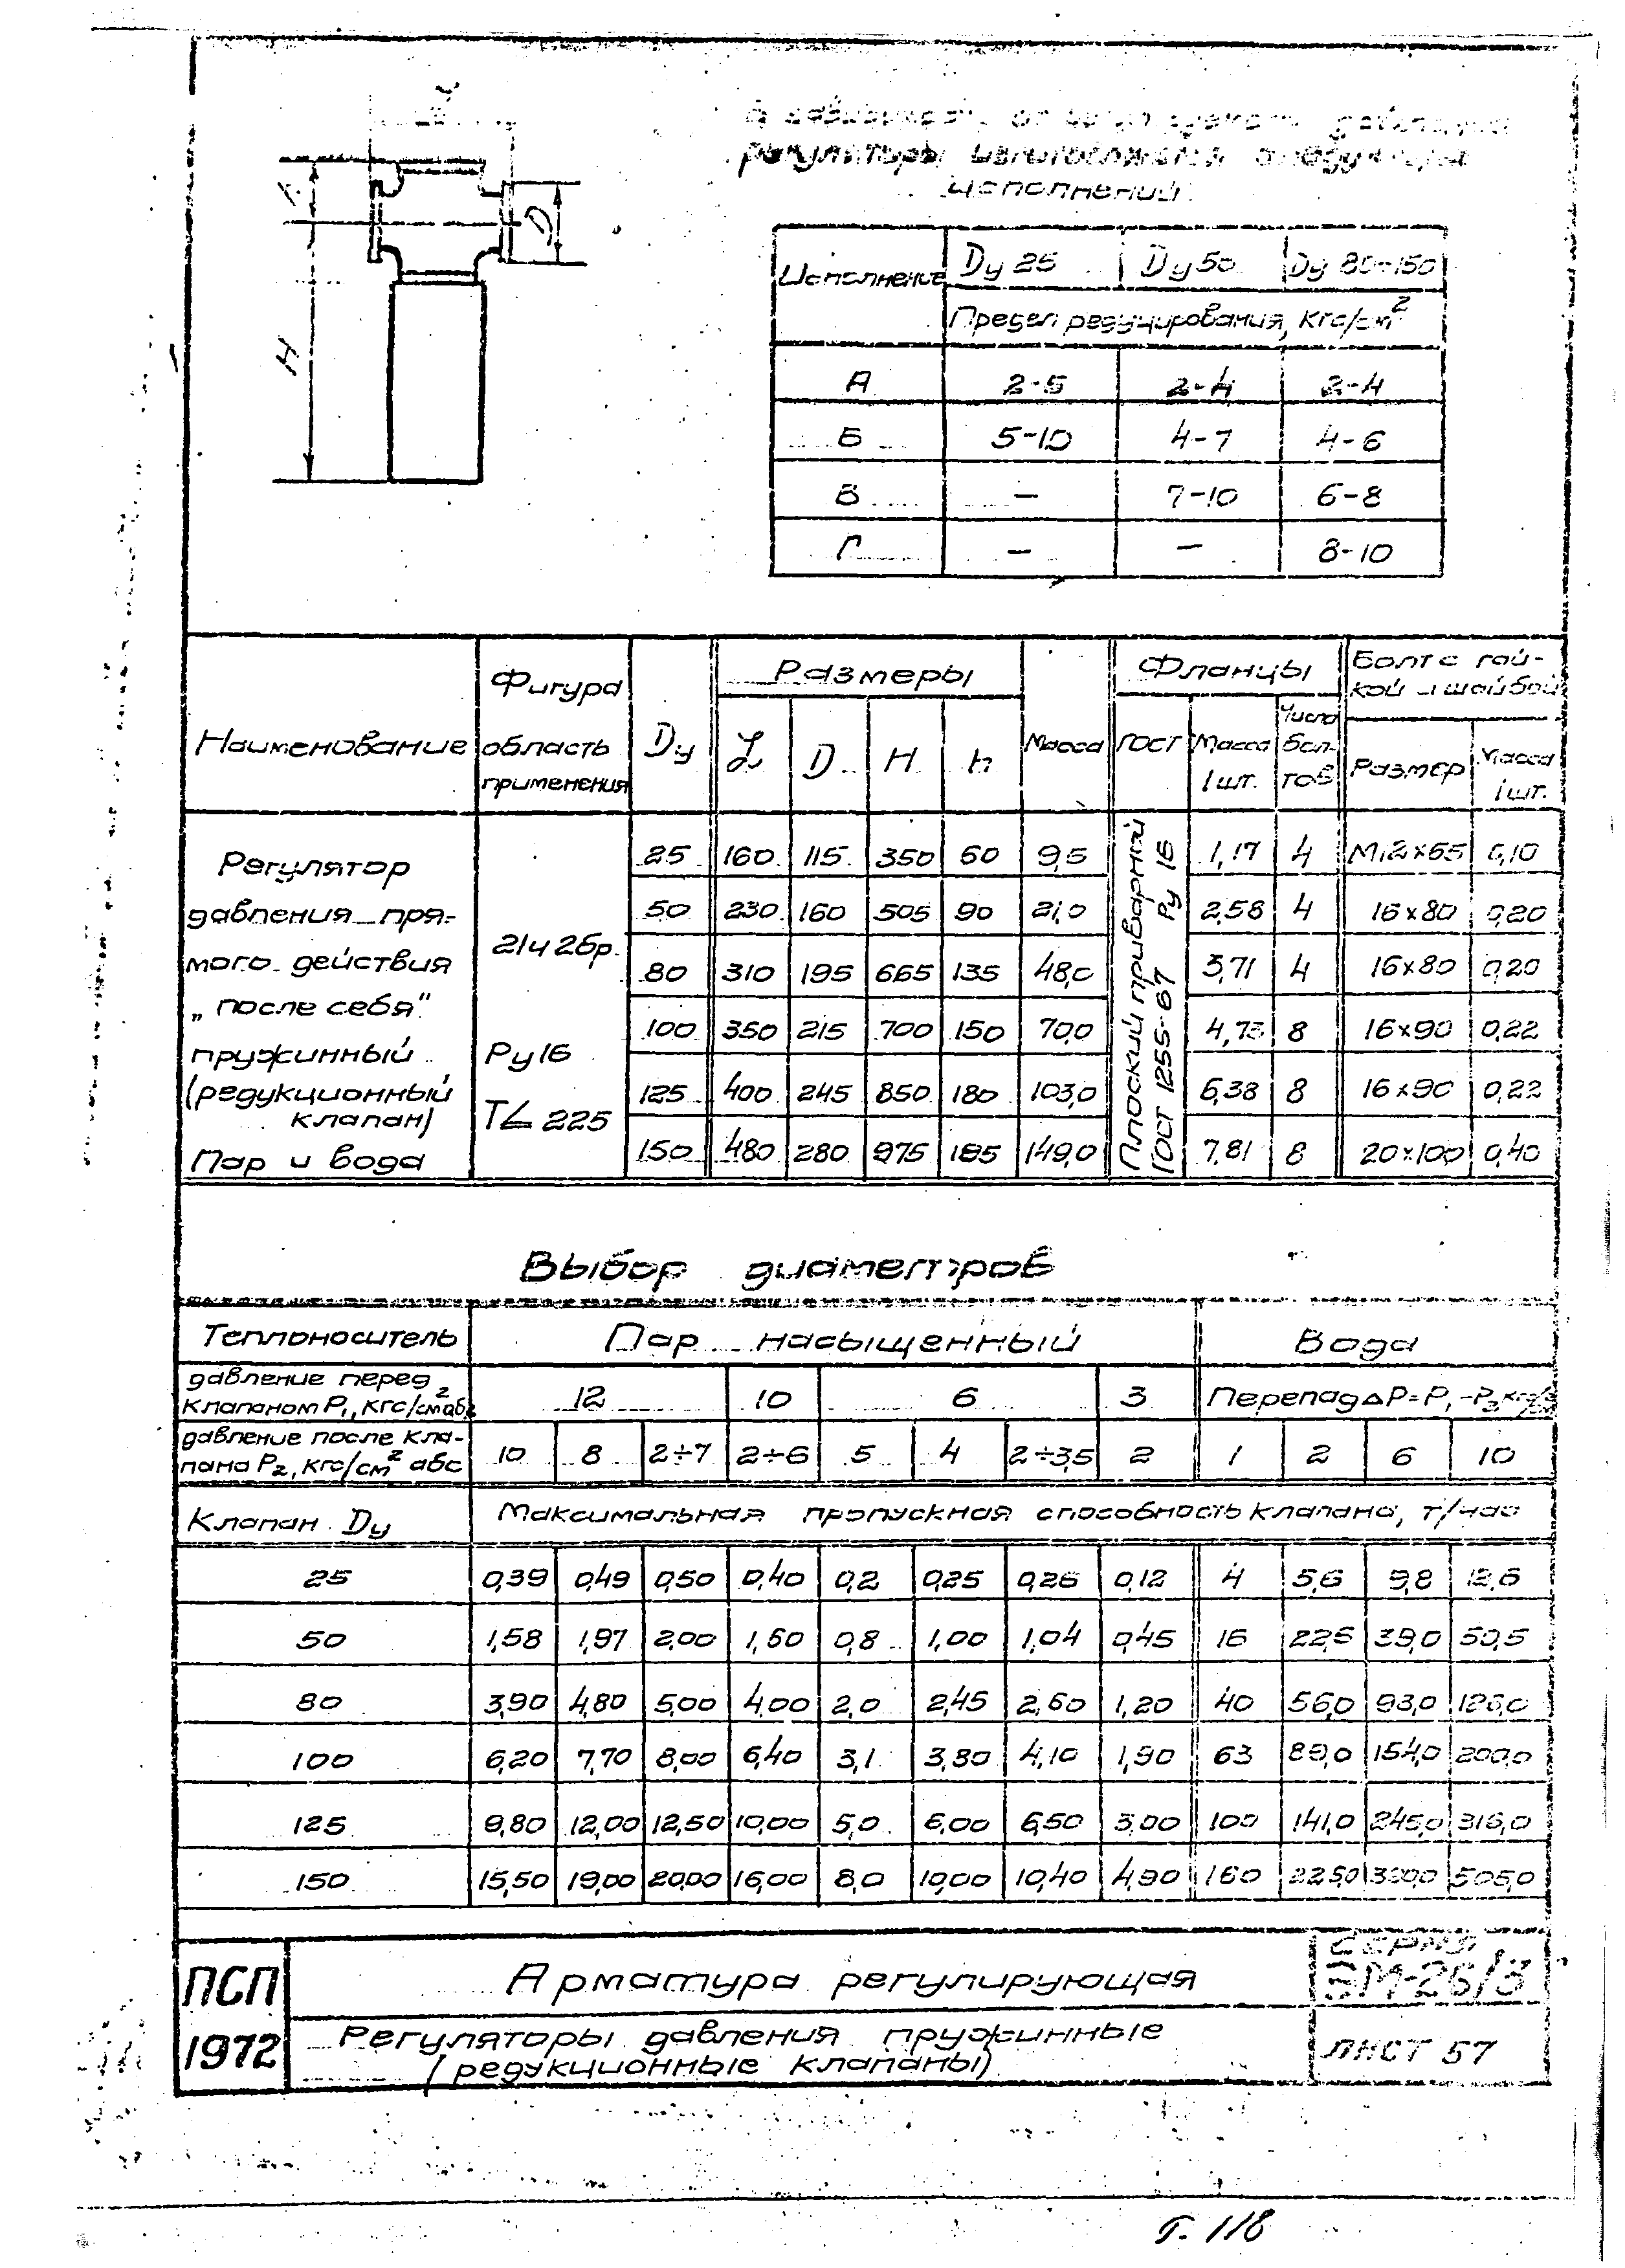 регуляторы изготовляются следующих
исполнений
L
h
H
D
Исполнение Dу 25 Dу 50 Dу 80-150
Предел редуцирования, кгс/см²
А 2-5 2-4 2-4
Б 5-10 4-7 4-6
В — 7-10 6-8
Г — — 8-10
Наименование Фигура область применения Dу Размеры Масса Фланцы Болт с гайкой и шайбой
L D H h ГОСТ Масса 1 шт. Число болтов Размер Масса 1 шт.
Регулятор
давления пря-
мого действия
„после себя"
пружинный
(редукционный
клапан)
Пар и вода
21ч 2бр.
Ру16
Т∠225
Плоский приварной Ру 16
ГОСТ 1255-67
25 160 115 350 60 9,5 1,17 4 М12×65 0,10
50 230 160 505 90 21,0 2,58 4 16×80 0,20
80 310 195 665 135 48,0 3,71 4 16×80 0,20
100 350 215 700 150 70,0 4,73 8 16×90 0,22
125 400 245 850 180 103,0 6,38 8 16×90 0,22
150 480 280 975 195 149,0 7,81 8 20×100 0,40
Выбор диаметров
Теплоноситель Пар насыщенный Вода
давление перед
клапаном Р₁, кгс/см² абс 12 10 6 3 Перепад ΔР=Р₁-Р₂ кгс/см²
давление после кла-
пана Р₂, кгс/см² абс 10 8 2÷7 2÷6 5 4 2÷3,5 2 1 2 6 10
Клапан Dу Максимальная пропускная способность клапана, т/час
25 0,39 0,49 0,50 0,40 0,2 0,25 0,26 0,12 4 5,6 9,8 12,6
50 1,58 1,97 2,00 1,60 0,8 1,00 1,04 0,45 16 22,6 39,0 50,5
80 3,90 4,80 5,00 4,00 2,0 2,45 2,60 1,20 40 56,0 93,0 126,0
100 6,20 7,70 8,00 6,40 3,1 3,80 4,10 1,90 63 89,0 154,0 200,0
125 9,80 12,00 12,50 10,00 5,0 6,00 6,50 3,00 100 141,0 245,0 316,0
150 15,50 19,00 20,00 16,00 8,0 10,00 10,40 4,90 160 225,0 505,0
ПСП
1972
Арматура регулирующая
Регуляторы давления пружинные
(редукционные клапаны)
СЕРИЯ
ЭМ-26/3
ЛИСТ 57
Т. 118